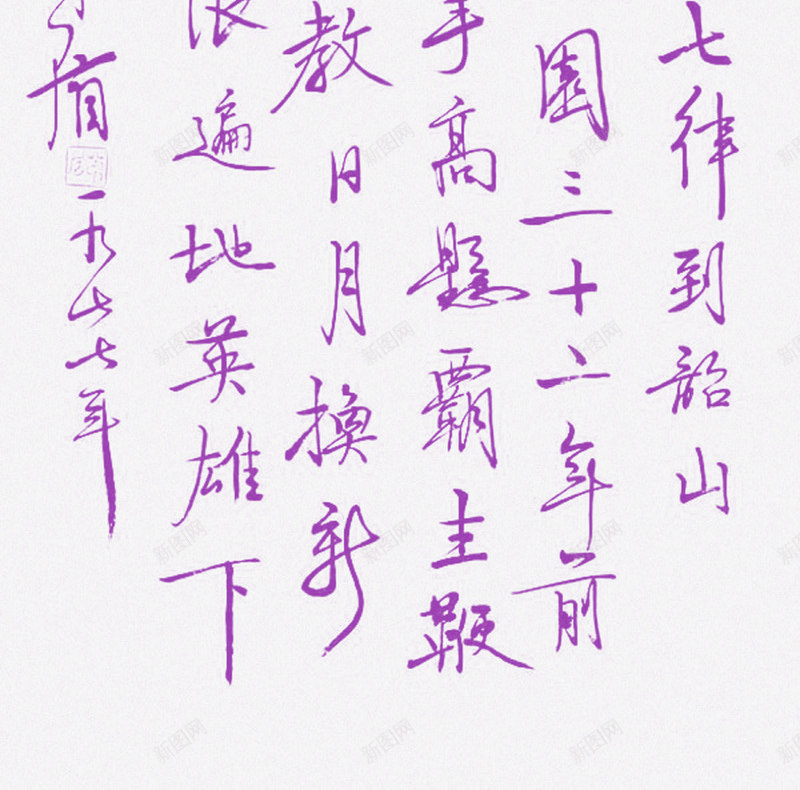 七律到韶山
園三十二年前
手高懸霸主鞭
教日月換新
浪遍地英雄下
盾
一九七七年
新图网